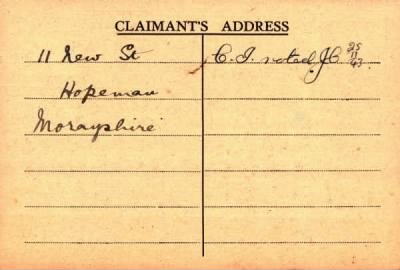 CLAIMANT'S ADDRESS
11 New St
Hopeman
Morayshire
C. I. noted JC 25/11/43.